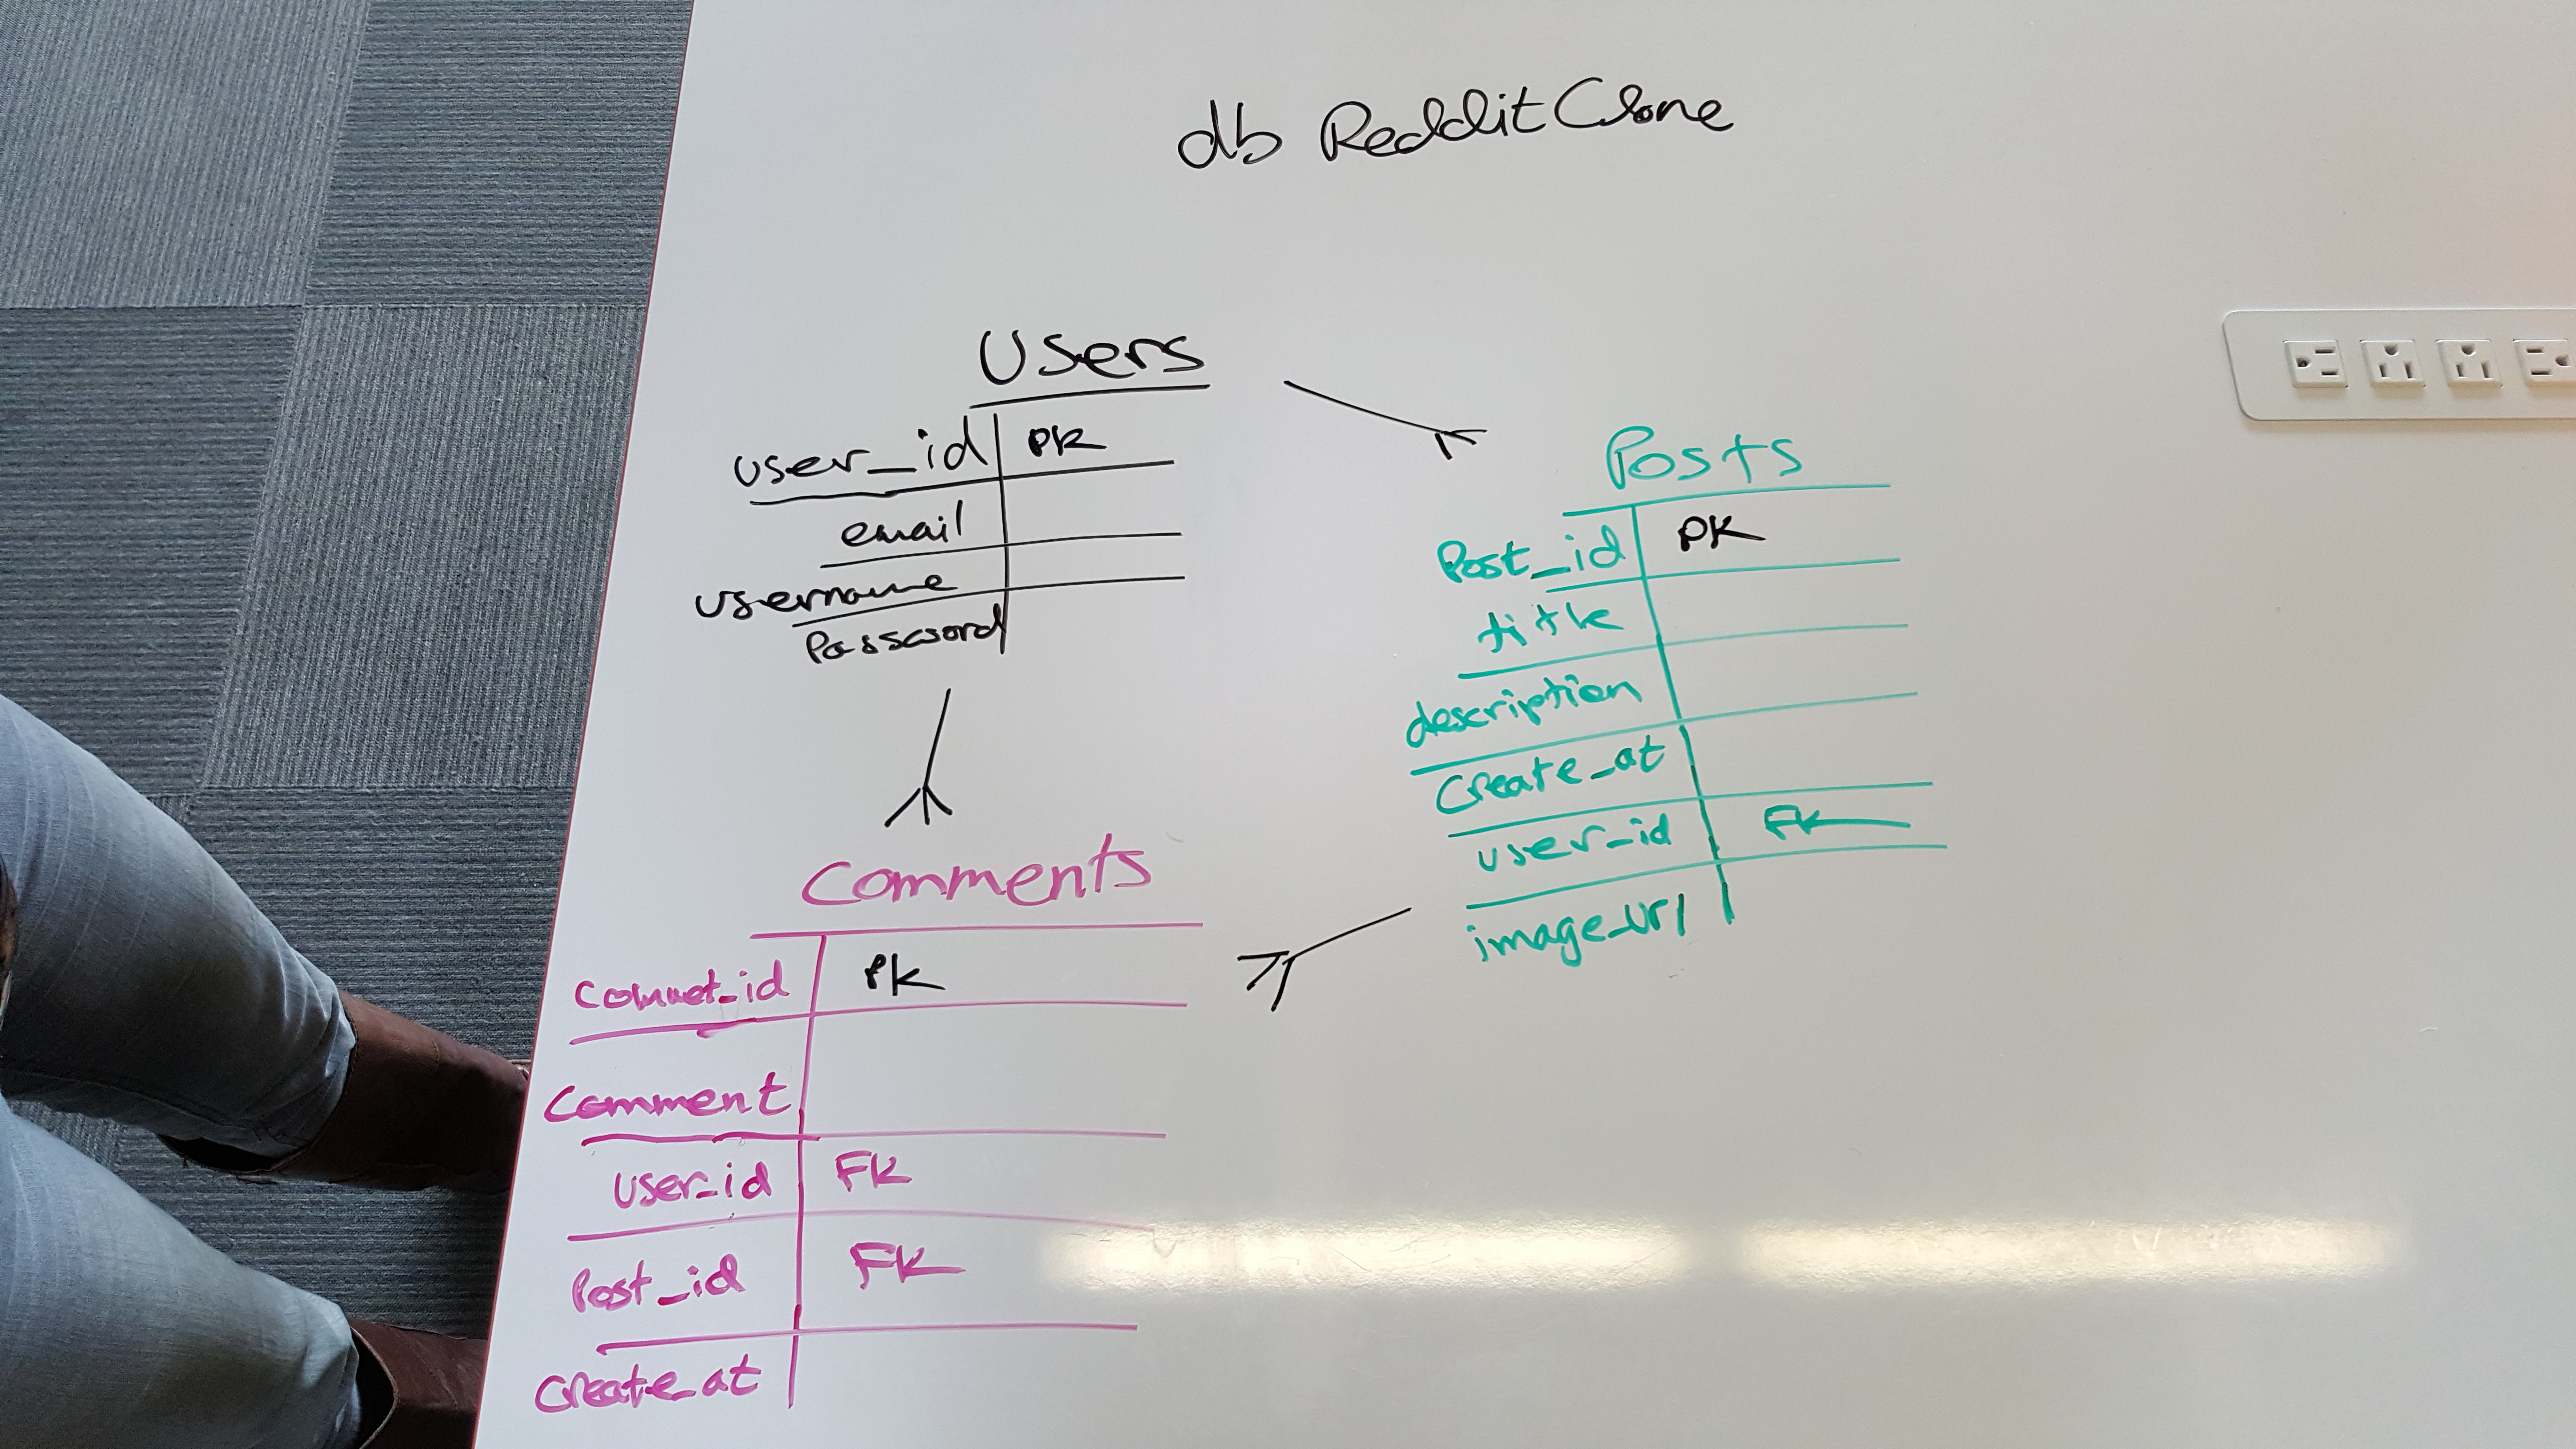 db RedditClone
Users
user_id PK
email
username
Password
Posts
Post_id PK
title
description
Create_at
user_id FK
image_url
Comments
commet_id PK
Comment
user_id FK
Post_id FK
Create_at